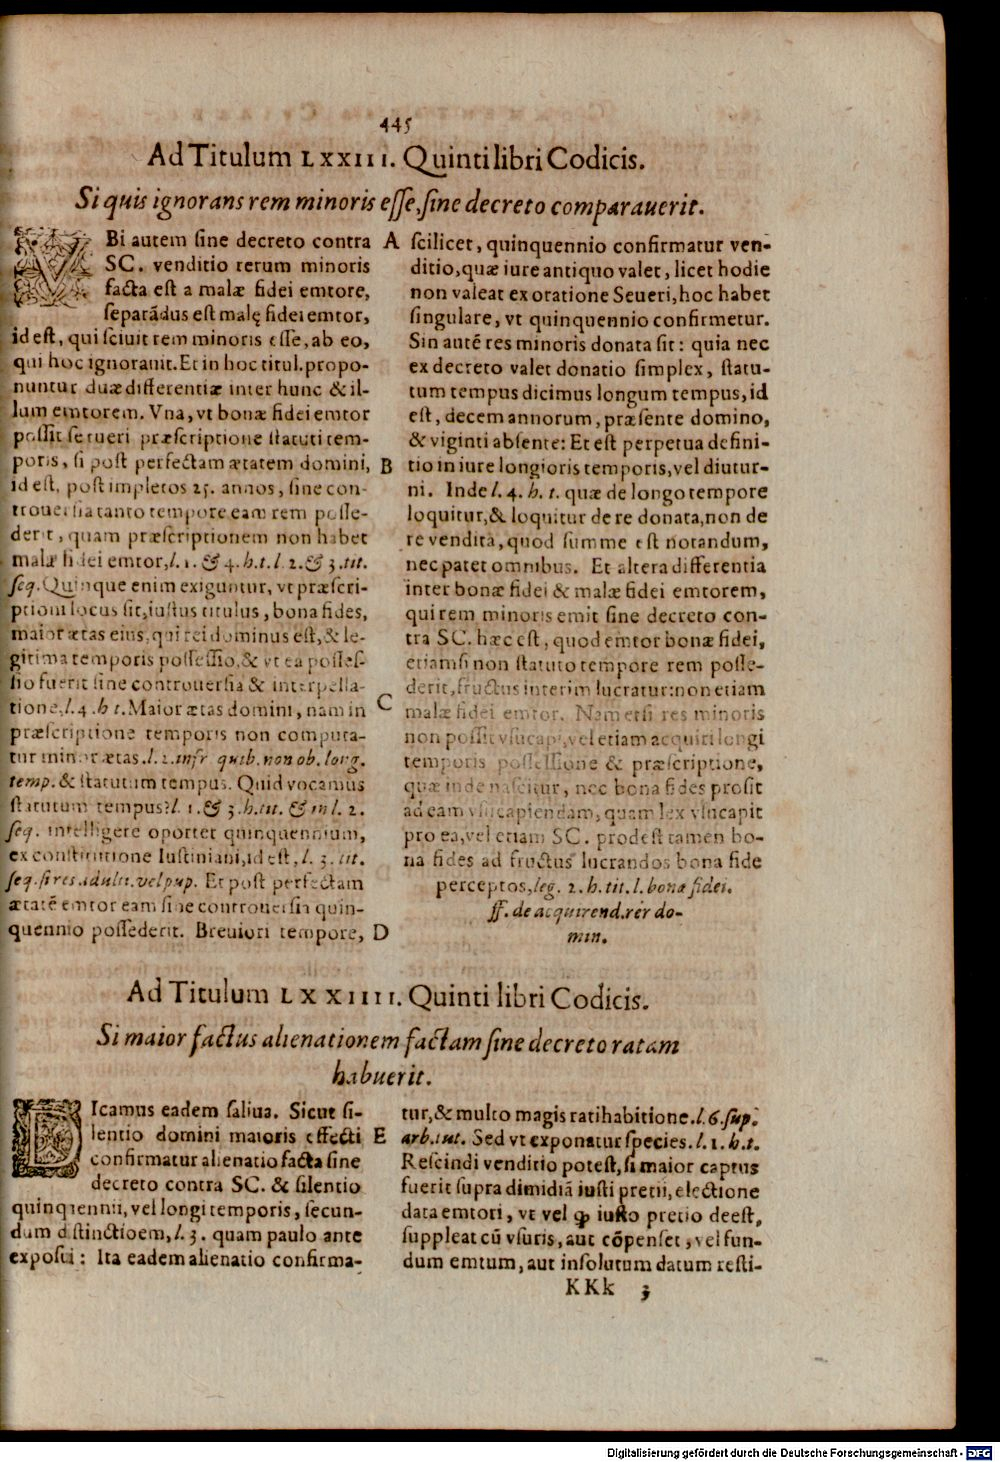 445
Ad Titulum LXXIII. Quinti libri Codicis.
Si quis ignorans rem minoris eſſe, ſine decreto comparauerit.
VBi autem ſine decreto contra
SC. venditio rerum minoris
facta eſt a malæ fidei emtore,
ſeparãdus eſt malę fidei emtor,
id eſt, qui ſciuit rem minoris eſſe, ab eo,
qui hoc ignorauit. Et in hoc titul. propo-
nuntur duæ differentiæ inter hunc & il-
lum emtorem. Vna, vt bonæ fidei emtor
poſſit ſe tueri præſcriptione ſtatuti tem-
poris, ſi poſt perfectam ætatem domini,
id eſt, poſt impletos 25. annos, ſine con-
trouerſia tanto tempore eam rem poſſe-
derit, quam præſcriptionem non habet
malæ fidei emtor, l. 1. & 4. h.t. l. 2. & 3. tit.
ſeq. Quinque enim exiguntur, vt præſcri-
ptioni locus ſit, iuſtus titulus, bona fides,
maior ætas eius, qui rei dominus eſt, & le-
gitima temporis poſſeſſio, & vt ea poſſeſ-
ſio fuerit ſine controuerſia & interpella-
tione, l. 4. h t. Maior ætas domini, nam in
præſcriptione temporis non computa-
tur minor ætas. l. 2. infr quib. non ob. long.
temp. & ſtatutum tempus. Quid vocamus
ſtatutum tempus? l. 1. & 3. h. tit. & in l. 2.
ſeq. intelligere oportet quinquennium,
ex conſtitutione Iuſtiniani, id eſt, l. 3. tit.
ſeq. ſi res adulti. vel pup. Et poſt perfectam
ætatẽ emtor eam ſine controuerſia quin-
quennio poſſederit. Breuiori tempore,
A ſcilicet, quinquennio confirmatur ven-
ditio, quæ iure antiquo valet, licet hodie
non valeat ex oratione Seueri, hoc habet
ſingulare, vt quinquennio confirmetur.
Sin autẽ res minoris donata ſit: quia nec
ex decreto valet donatio ſimplex, ſtatu-
tum tempus dicimus longum tempus, id
eſt, decem annorum, præſente domino,
& viginti abſente: Et eſt perpetua defini-
B tio in iure longioris temporis, vel diutur-
ni. Inde l. 4. h. t. quæ de longo tempore
loquitur, & loquitur de re donata, non de
re vendita, quod ſumme eſt notandum,
nec patet omnibus. Et altera differentia
inter bonæ fidei & malæ fidei emtorem,
qui rem minoris emit ſine decreto con-
tra SC. hæc eſt, quod emtor bonæ fidei,
etiamſi non ſtatuto tempore rem poſſe-
derit, fructus interim lucratur: non etiam
C malæ fidei emtor. Nam etſi res minoris
non poſſit vſucapi, vel etiam acquiri longi
temporis poſſeſſione & præſcriptione,
quæ inde naſcitur, nec bona fides proſit
ad eam vſucapiendam, quam lex vſucapit
pro ea, vel etiam SC. prodeſt tamen bo-
na fides ad fructus lucrandos bona fide
perceptos, leg. 2. h. tit. l. bonæ fidei.
ff. de acquirend. rer do-
D min.
Ad Titulum LXXIIII. Quinti libri Codicis.
Si maior factus alienationem factam ſine decreto ratam
habuerit.
DIcamus eadem ſaliua. Sicut ſi-
lentio domini maioris effecti
confirmatur alienatio facta ſine
decreto contra SC. & ſilentio
quinquennii, vel longi temporis, ſecun-
dum diſtinctioem, l. 3. quam paulo ante
expoſui: Ita eadem alienatio confirma-
tur, & multo magis ratihabitione. l. 6. ſup.
E arb. tut. Sed vt exponatur ſpecies. l. 1. h. t.
Reſcindi venditio poteſt, ſi maior captus
fuerit ſupra dimidiã iuſti pretii, electione
data emtori, vt vel ꝙ iuſto pretio deeſt,
ſuppleat cũ vſuris, aut cõpenſet, vel fun-
dum emtum, aut inſolutum datum reſti-
KKk 3
Digitalisierung gefördert durch die Deutsche Forschungsgemeinschaft - DFG